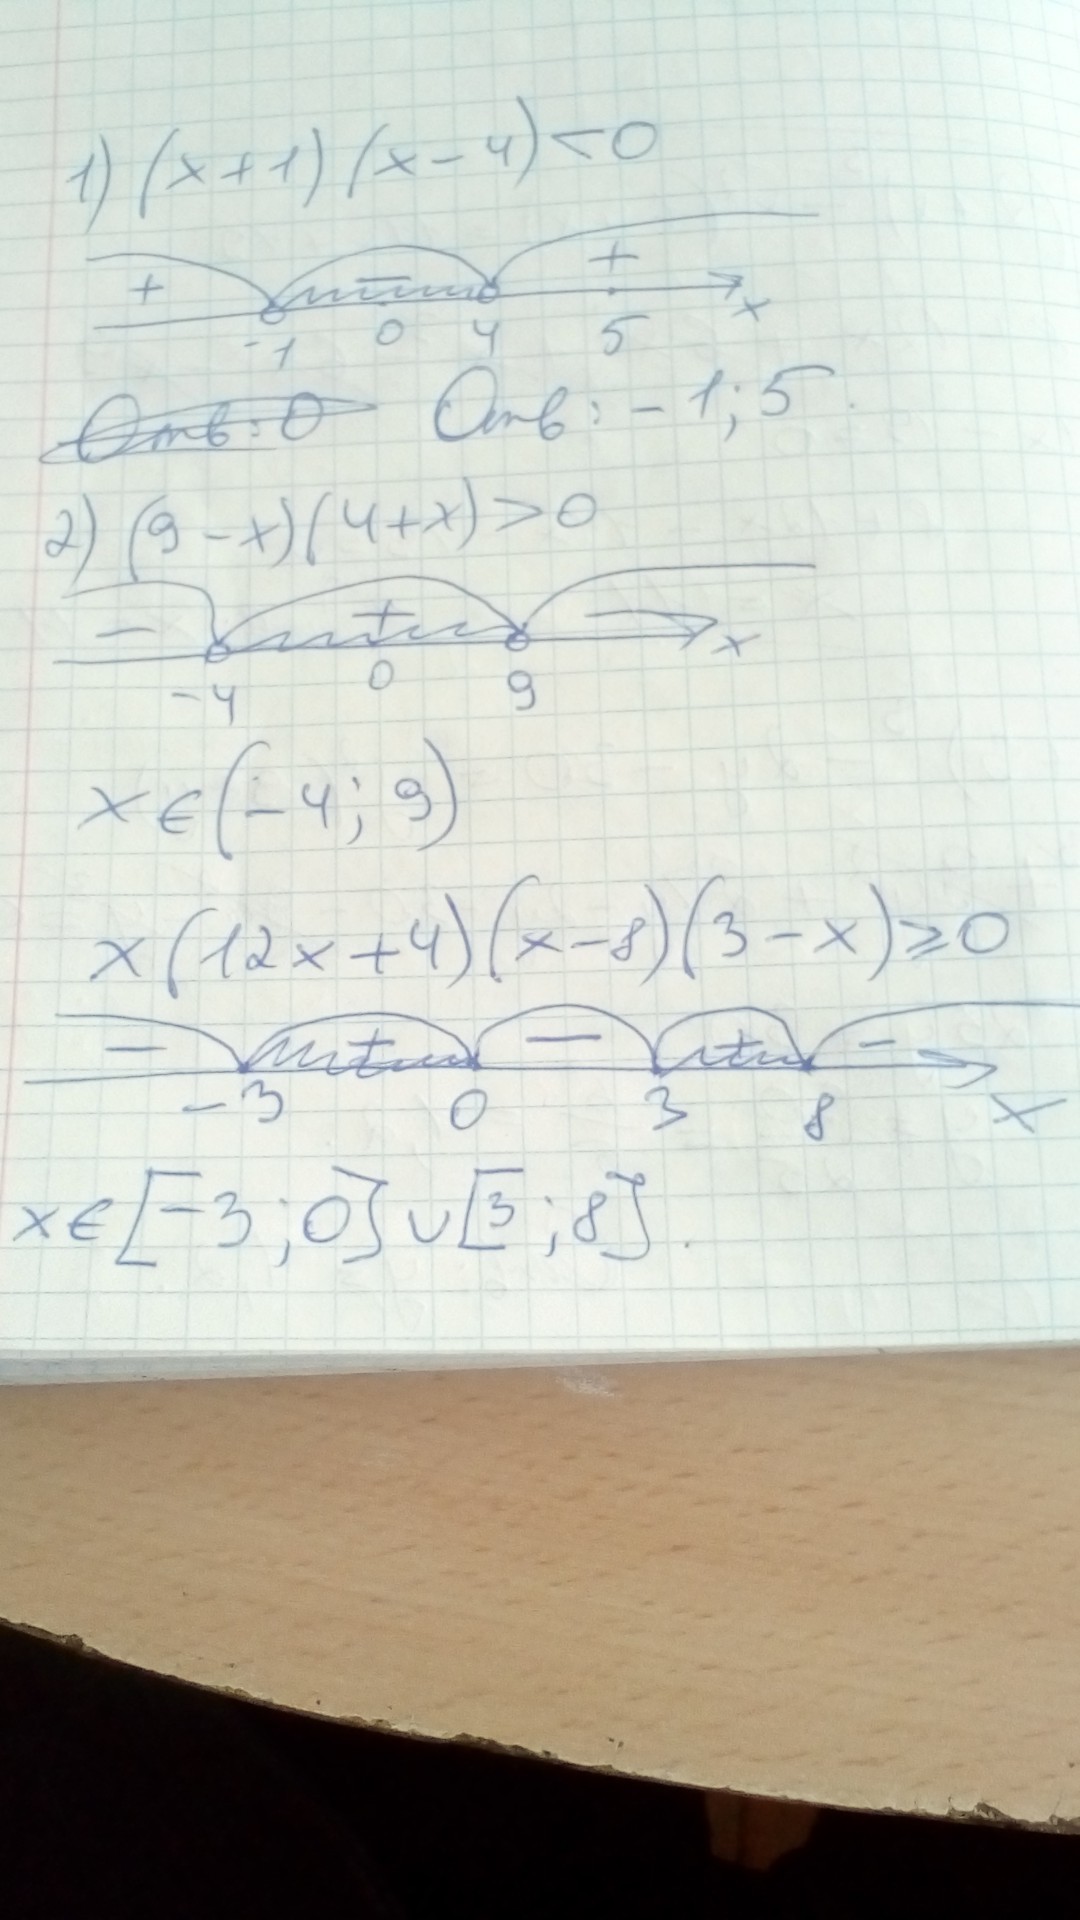 1) (x+1)(x-4)<0
+ − +
-1 0 4 5 x
Отв: 0 Отв: -1; 5.
2) (9-x)(4+x)>0
− + −
-4 0 9 x
x∈(-4; 9)
x(12x+4)(x-8)(3-x)≥0
− + − + -
-3 0 3 8 x
x∈[-3; 0]∪[3; 8].